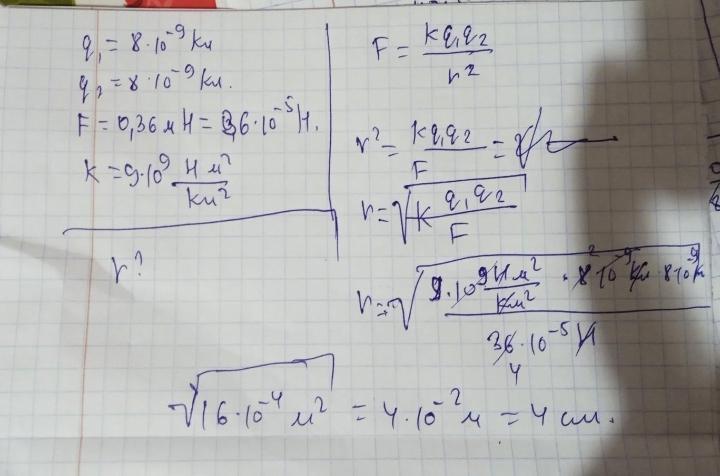 q₁ = 8·10⁻⁹ Кл
q₂ = 8·10⁻⁹ Кл.
F = 0,36 мН = 36·10⁻⁵ Н.
K = 9·10⁹ Н м²/Кл²
r?
F = kq₁q₂/r²
r² = kq₁q₂/F =
r = √(K q₁q₂/F)
r = √(9·10⁹ Н м²/Кл² · 8·10⁻⁹ Кл · 8·10⁻⁹ Кл / 36·10⁻⁵ Н)
2
4
√(16·10⁻⁴ м²) = 4·10⁻² м = 4 см.